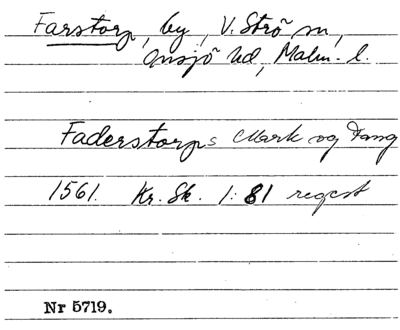 Farstorp, by, V. Strö sn,
Onsjö hd, Malm. l.
Faderstorps Mark og Fang
1561. Kr. Sk. 1:81 regest
Nr 5719.